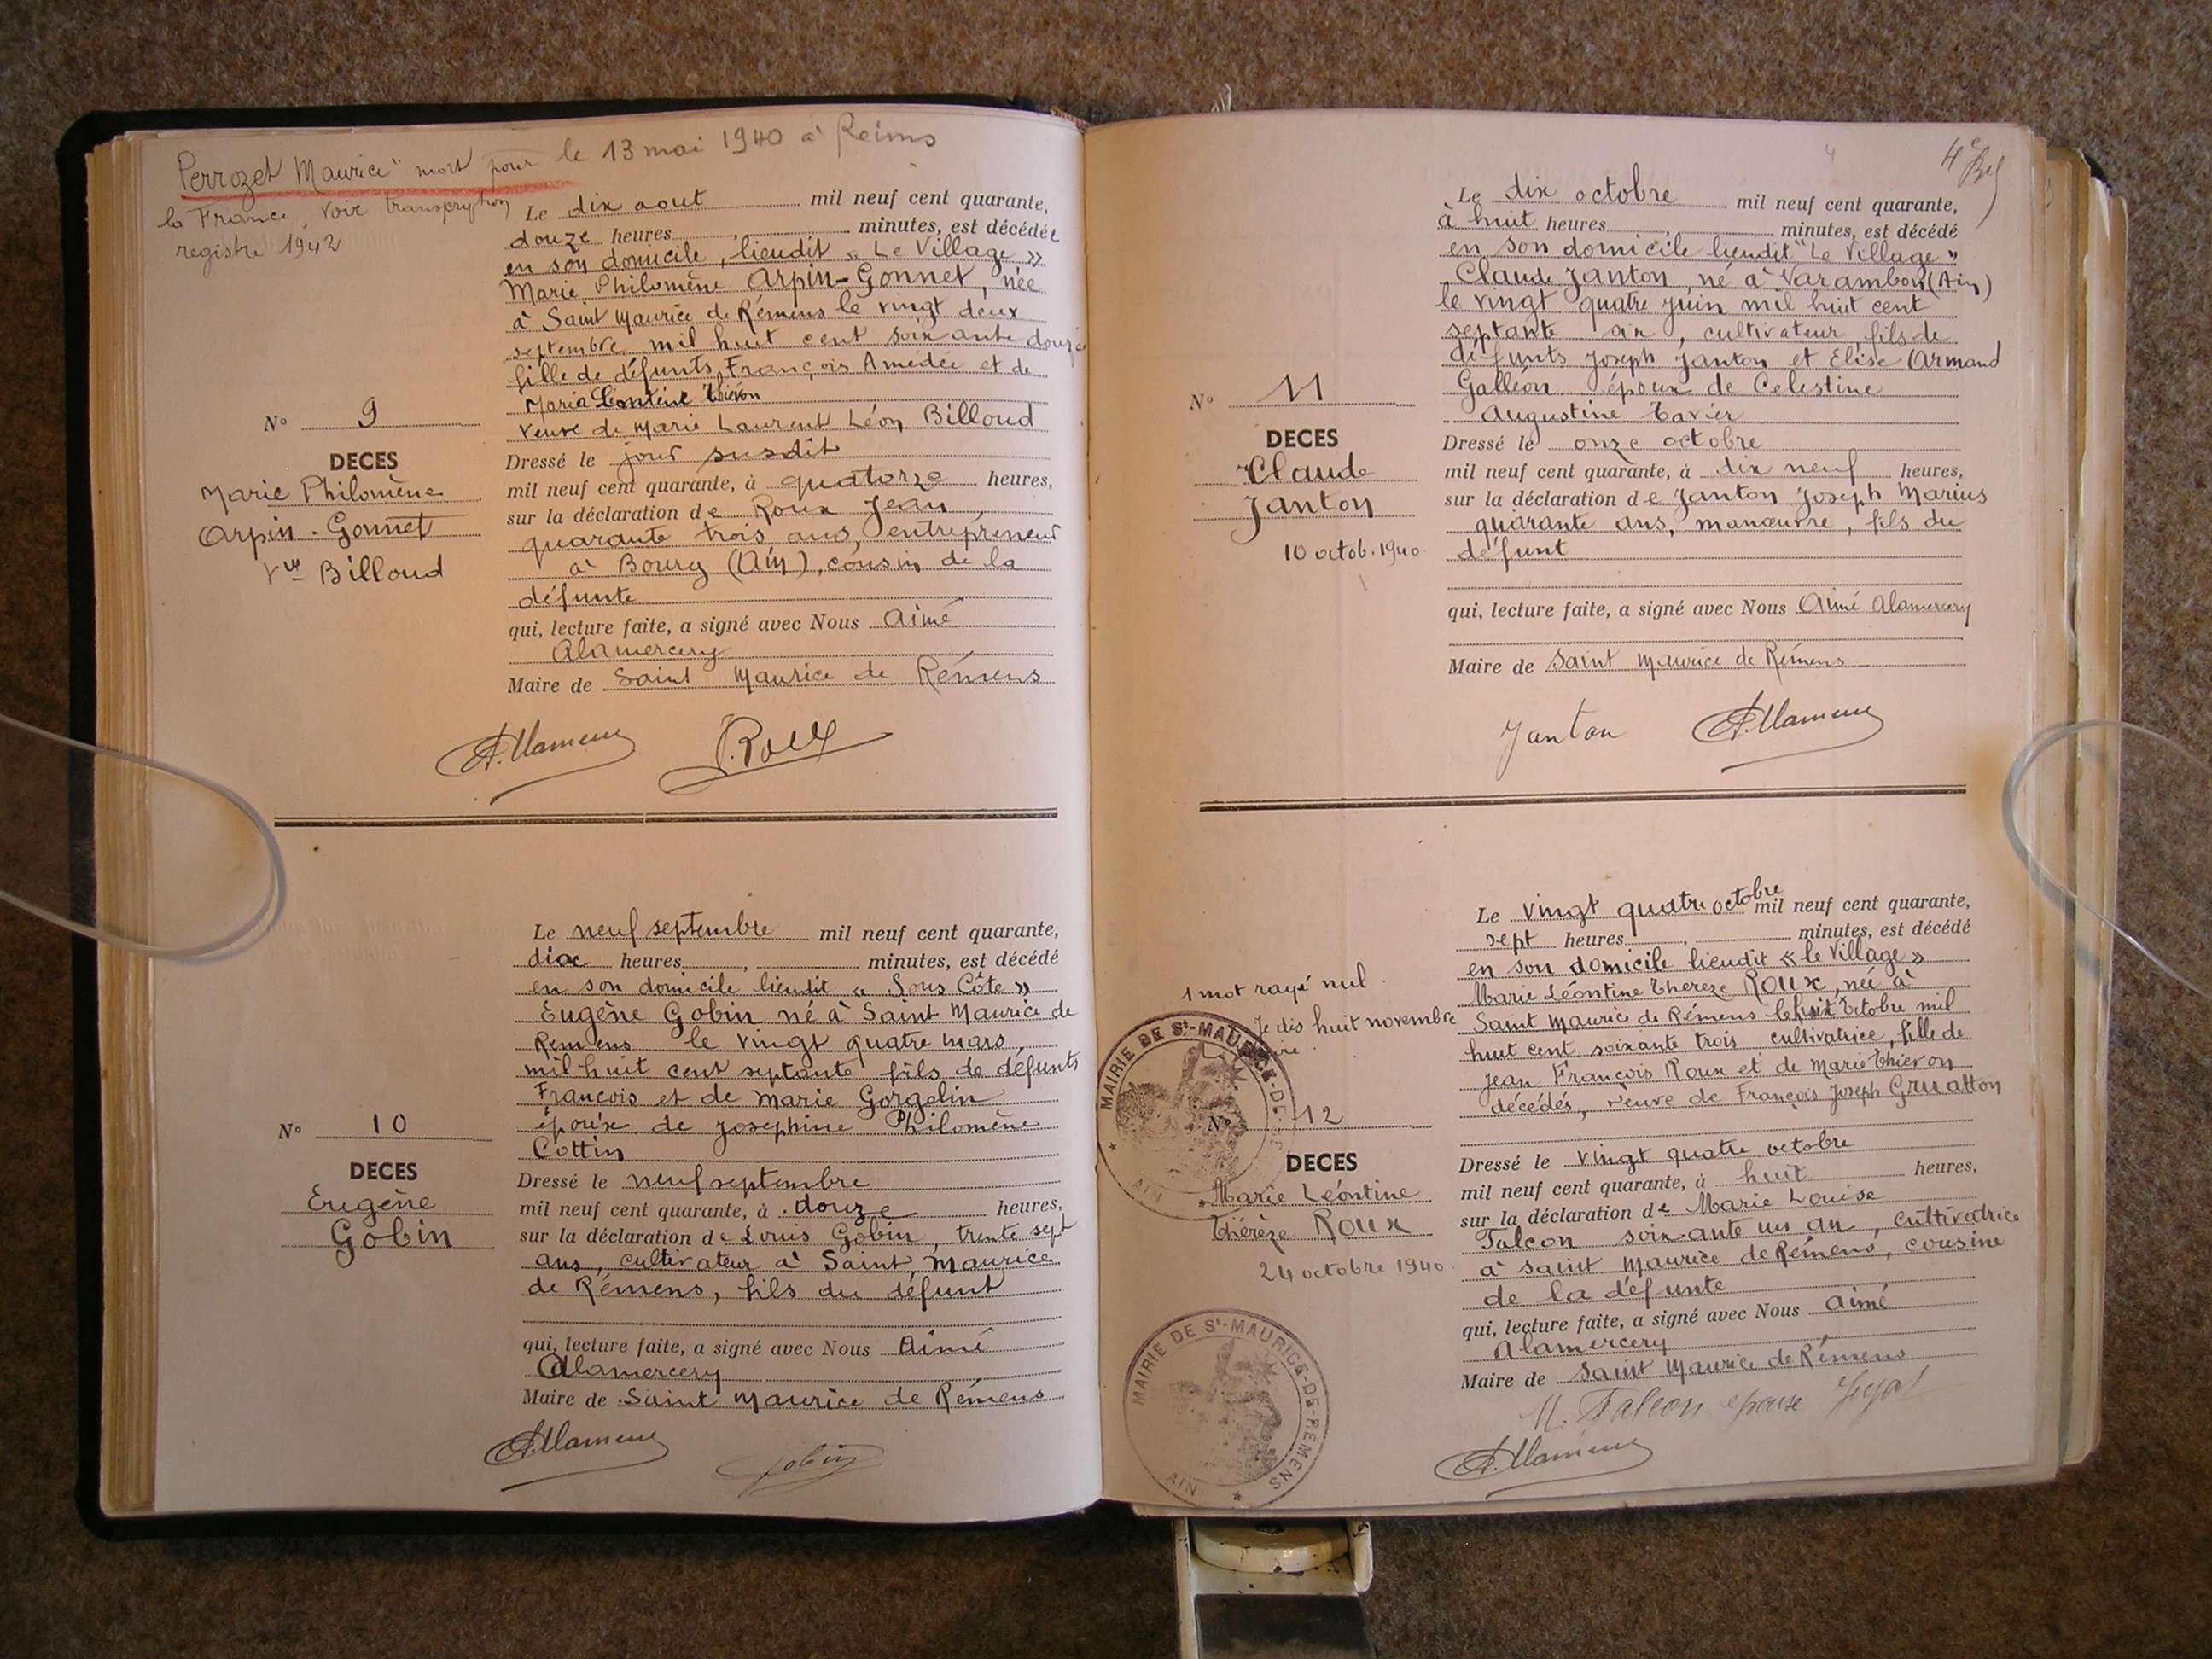 Perrozet Maurice "mort pour le 13 mai 1940 à Reims
la France, voir transcryption
registre 1942
Le dix aout mil neuf cent quarante,
douze heures, minutes, est décédée
en son domicile, lieudit « Le Village »
Marie Philomène Arpin-Gonnet, née
à Saint Maurice de Rémens le vingt deux
septembre mil huit cent soixante douze
fille de défunts François Amédée et de
Maria Léontine Thiévon
veuve de Marie Laurent Léon Billoud
Dressé le jour susdit
mil neuf cent quarante, à quatorze heures,
sur la déclaration de Roux Jean,
quarante trois ans, entrepreneur
à Bourg (Ain), cousin de la
défunte
qui, lecture faite, a signé avec Nous Aimé
Alamercery
Maire de Saint Maurice de Rémens
N° 9
DECES
Marie Philomène
Arpin-Gonnet
Vve Billoud
J. Roux
Le neuf septembre mil neuf cent quarante,
dix heures, minutes, est décédé
en son domicile lieudit « Sous Côte »
Eugène Gobin né à Saint Maurice de
Rémens le vingt quatre mars,
mil huit cent septante fils de défunts
François et de Marie Gorgelin
époux de Joséphine Philomène
Cottin
Dressé le neuf septembre
mil neuf cent quarante, à douze heures,
sur la déclaration de Louis Gobin, trente sept
ans, cultivateur à Saint Maurice
de Rémens, fils du défunt
qui, lecture faite, a signé avec Nous Aimé
Alamercery
Maire de Saint Maurice de Rémens
N° 10
DECES
Eugène
Gobin
Gobin
4
4e
Le dix octobre mil neuf cent quarante,
à huit heures, minutes, est décédé
en son domicile lieudit "Le Village"
Claude Janton, né à Varambon (Ain)
le vingt quatre juin mil huit cent
septante six, cultivateur, fils de
défunts Joseph Janton et Elise Armand
Galléon époux de Celestine
Augustine Tavier
Dressé le onze octobre
mil neuf cent quarante, à dix neuf heures,
sur la déclaration de Janton Joseph Marius
quarante ans, manœuvre, fils du
défunt
qui, lecture faite, a signé avec Nous Aimé Alamercery
Maire de Saint Maurice de Rémens
N° 11
DECES
Claude
Janton
10 octob. 1940
Janton
Le vingt quatre octobre mil neuf cent quarante,
sept heures, minutes, est décédé
en son domicile lieudit « le Village »
Marie Léontine Thereze Roux, née à
Saint Maurice de Rémens le huit Octobre mil
huit cent soixante trois cultivatrice, fille de
Jean François Roux et de Marie Thievon
décédés, veuve de François Joseph Gruatton
Dressé le vingt quatre octobre
mil neuf cent quarante, à huit heures,
sur la déclaration de Marie Louise
Falcon soixante un an, cultivatrice
à Saint Maurice de Rémens, cousine
de la défunte
qui, lecture faite, a signé avec Nous Aimé
Alamercery
Maire de Saint Maurice de Rémens
M. Falcon épouse
1 mot rayé nul
Je dis huit novembre
MAIRIE DE St-MAURICE-DE-
AIN
N° 12
DECES
Marie Léontine
Thérèze Roux
24 octobre 1940
MAIRIE DE St-MAURICE-DE-REMENS
AIN